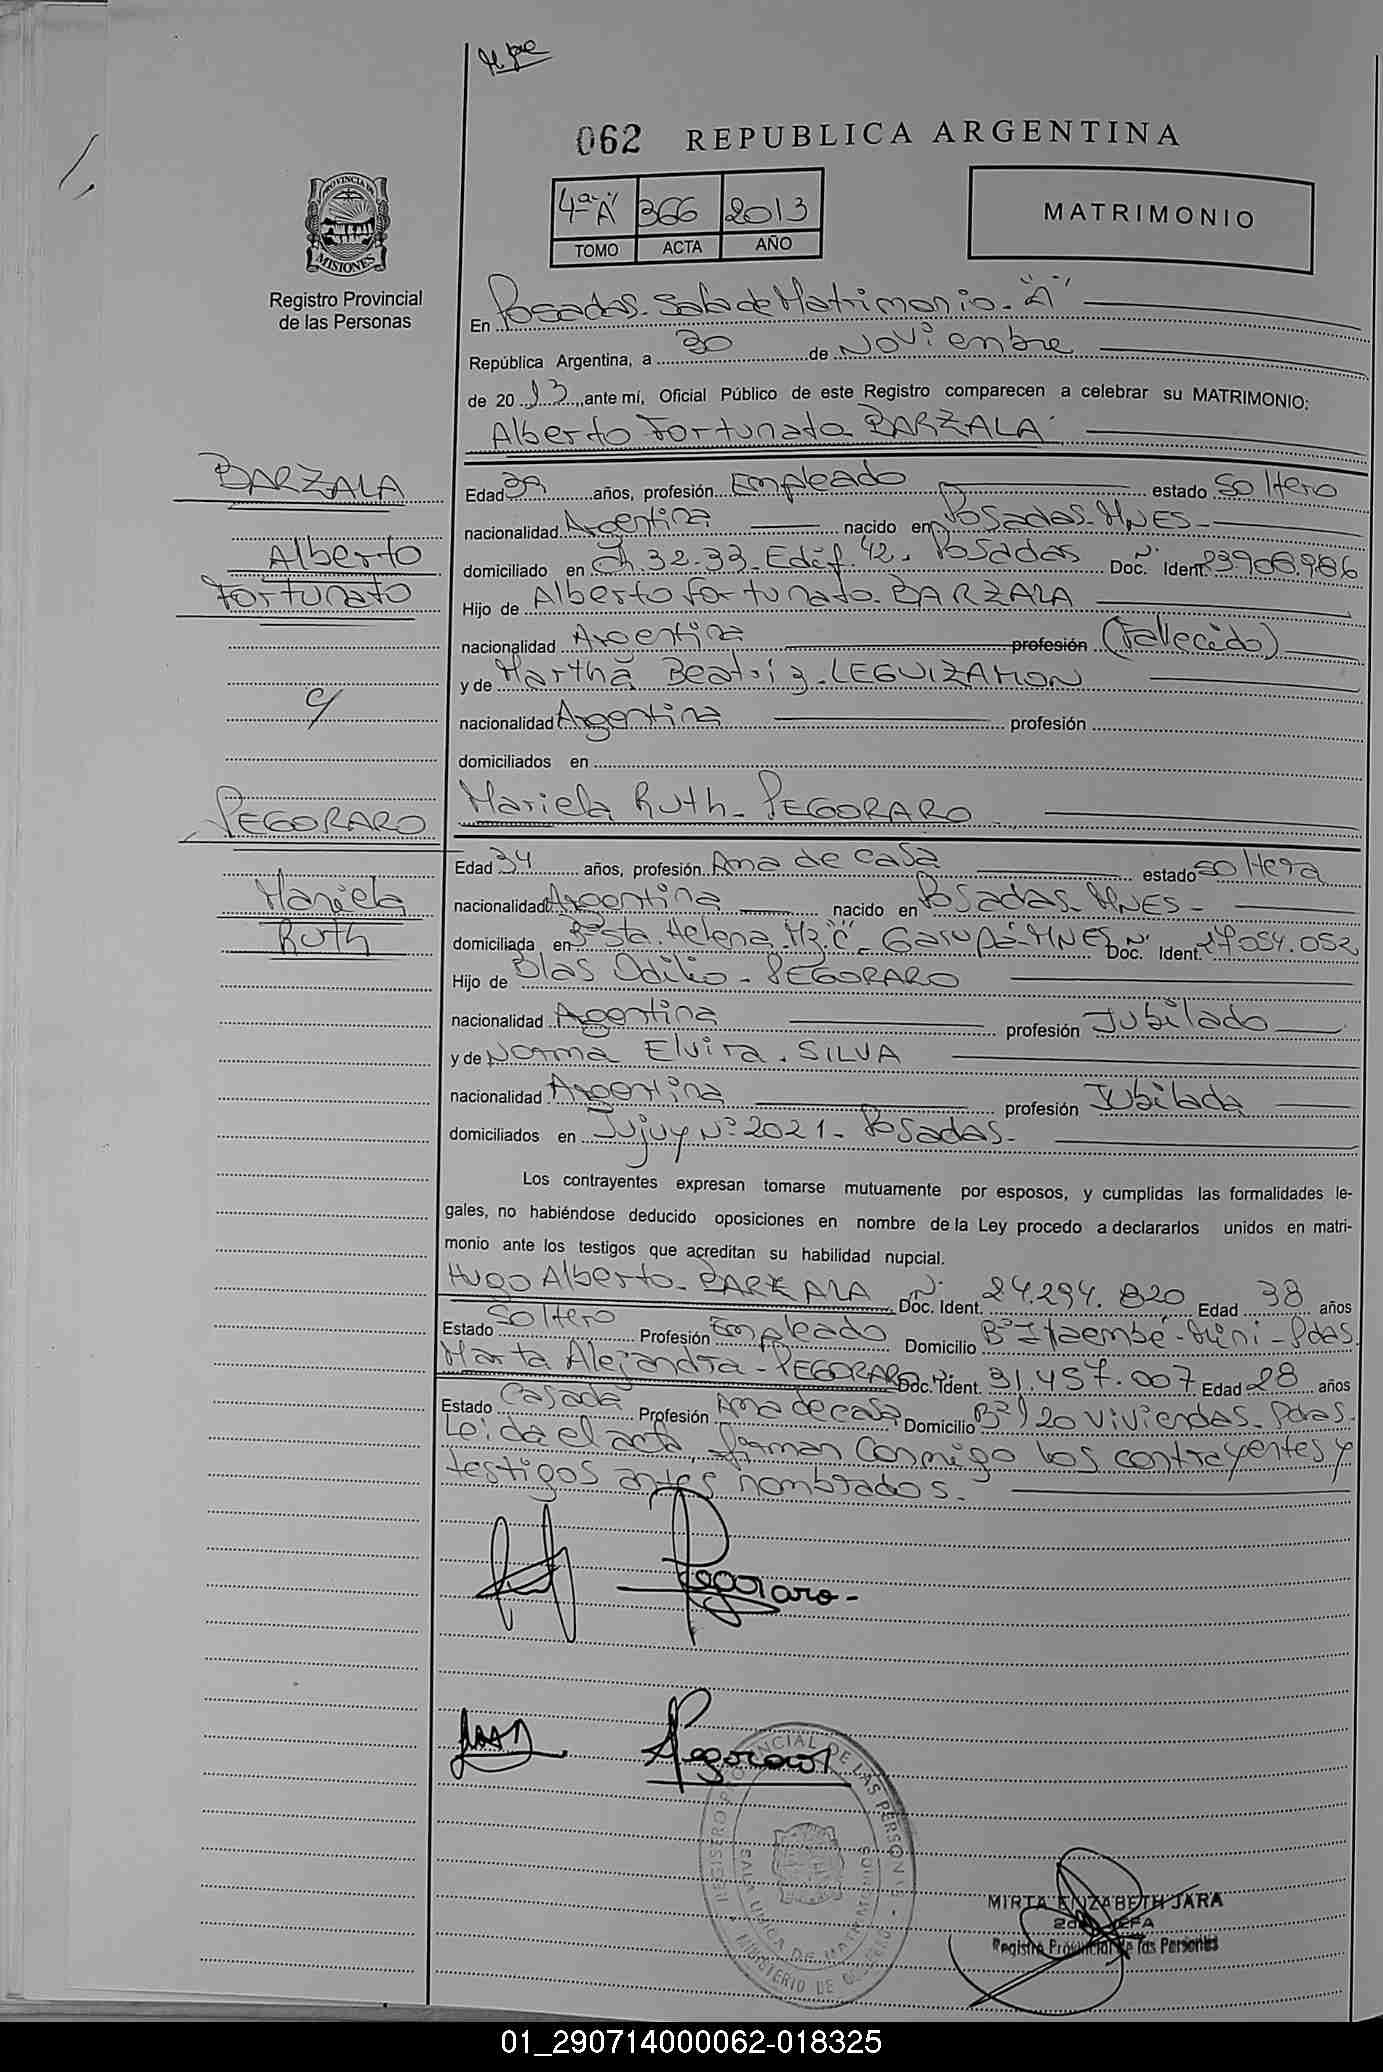 062 REPUBLICA ARGENTINA
PROVINCIA DE
MISIONES
Registro Provincial
de las Personas
4ª "A" 366 2013
TOMO ACTA AÑO
MATRIMONIO
En Posadas. Sala de Matrimonio. "A"
República Argentina, a 30 de Noviembre
de 2013, ante mí, Oficial Público de este Registro comparecen a celebrar su MATRIMONIO:
Alberto Fortunato BARZALA
BARZALA
Edad 39 años, profesión Empleado estado soltero
nacionalidad Argentina nacido en Posadas-MNES-
Alberto
domiciliado en Ch. 32-33-Edif. 42. Posadas Doc. Ident. Nº 23.906.986
Fortunato
Hijo de Alberto Fortunato BARZALA
nacionalidad Argentina profesión (Fallecido)
y de Martha Beatriz LEGUIZAMON
c/
nacionalidad Argentina profesión
domiciliados en
Mariela Ruth PEGORARO
PEGORARO
Edad 34 años, profesión Ama de casa estado soltera
Mariela
nacionalidad Argentina nacido en Posadas-MNES-
Ruth
domiciliada en Bº Sta. Helena Mz. "C" - Garupá-MNES Doc. Ident. Nº 27.054.052
Hijo de Blas Odilio PEGORARO
nacionalidad Argentina profesión Jubilado
y de Norma Elvira SILVA
nacionalidad Argentina profesión Jubilada
domiciliados en Jujuy Nº 2021- Posadas-
Los contrayentes expresan tomarse mutuamente por esposos, y cumplidas las formalidades le-
gales, no habiéndose deducido oposiciones en nombre de la Ley procedo a declararlos unidos en matri-
monio ante los testigos que acreditan su habilidad nupcial.
Hugo Alberto BARZALA Doc. Ident. Nº 24.294.820 Edad 38 años
Estado soltero Profesión Empleado Domicilio Bº Itaembé-Miní-Pdas.
Marta Alejandra PEGORARO Doc. Ident. 31.457.007 Edad 28 años
Estado Casada Profesión Ama de casa Domicilio Bº 120 viviendas-Pdas.
Leída el acta, firman conmigo los contrayentes y
testigos antes nombrados.
Pegoraro
Pegoraro
REGISTRO PROVINCIAL DE LAS PERSONAS
SALA UNICA DE MATRIMONIOS
MINISTERIO DE GOBIERNO
MIRTA ELIZABETH JARA
2da. JEFA
Registro Provincial de las Personas
01_290714000062-018325